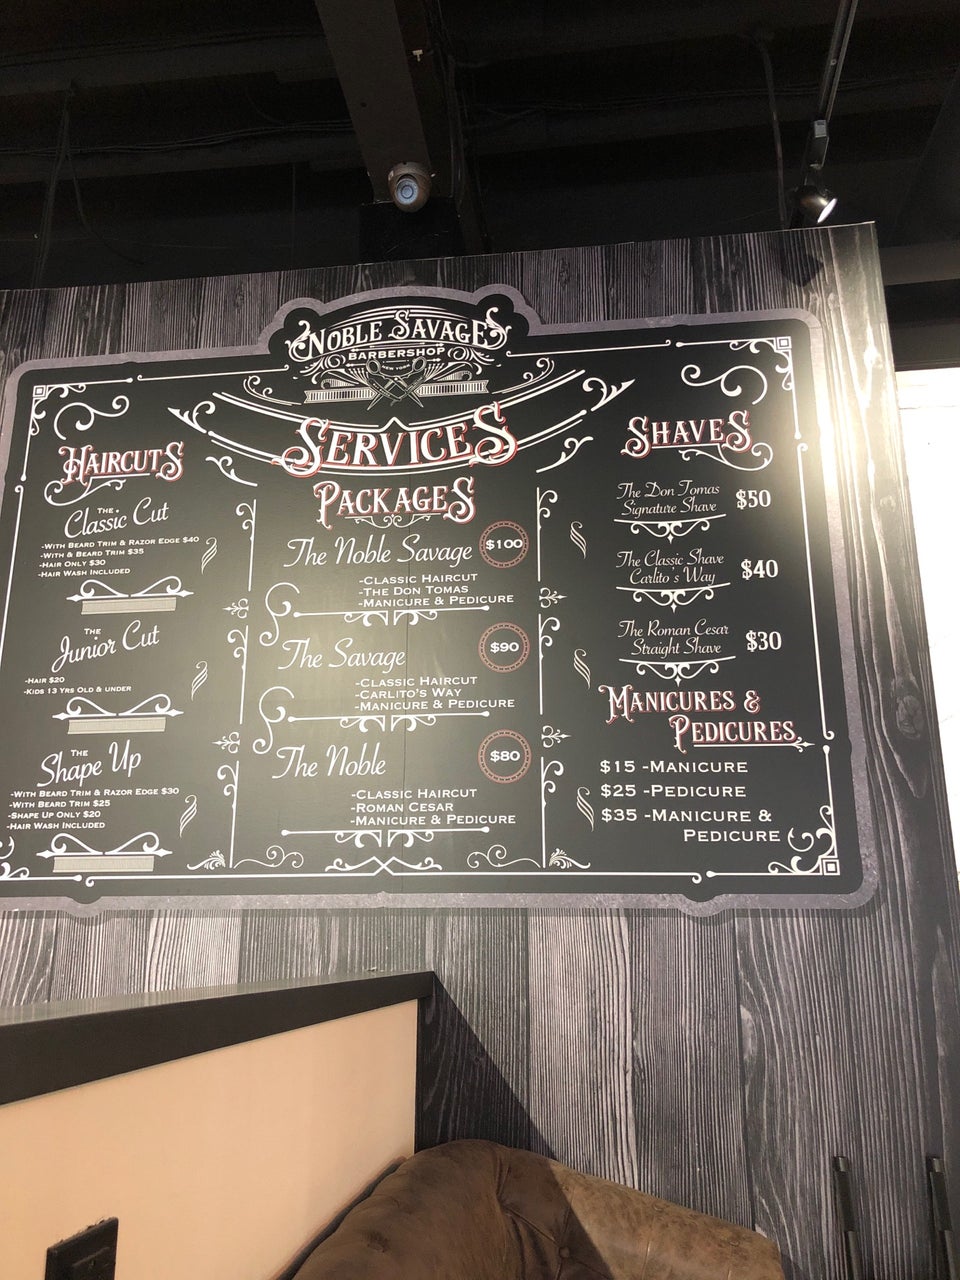 NOBLE SAVAGE
BARBERSHOP
NEW YORK
SERVICES
HAIRCUTS
THE
Classic Cut
-WITH BEARD TRIM & RAZOR EDGE $40
-WITH & BEARD TRIM $35
-HAIR ONLY $30
-HAIR WASH INCLUDED
THE
Junior Cut
-HAIR $20
-KIDS 13 YRS OLD & UNDER
THE
Shape Up
-WITH BEARD TRIM & RAZOR EDGE $30
-WITH BEARD TRIM $25
-SHAPE UP ONLY $20
-HAIR WASH INCLUDED
PACKAGES
The Noble Savage $100
-CLASSIC HAIRCUT
-THE DON TOMAS
-MANICURE & PEDICURE
The Savage $90
-CLASSIC HAIRCUT
-CARLITO'S WAY
-MANICURE & PEDICURE
The Noble $80
-CLASSIC HAIRCUT
-ROMAN CESAR
-MANICURE & PEDICURE
SHAVES
The Don Tomas
Signature Shave $50
The Classic Shave
Carlito's Way $40
The Roman Cesar
Straight Shave $30
MANICURES &
PEDICURES
$15 -MANICURE
$25 -PEDICURE
$35 -MANICURE &
PEDICURE